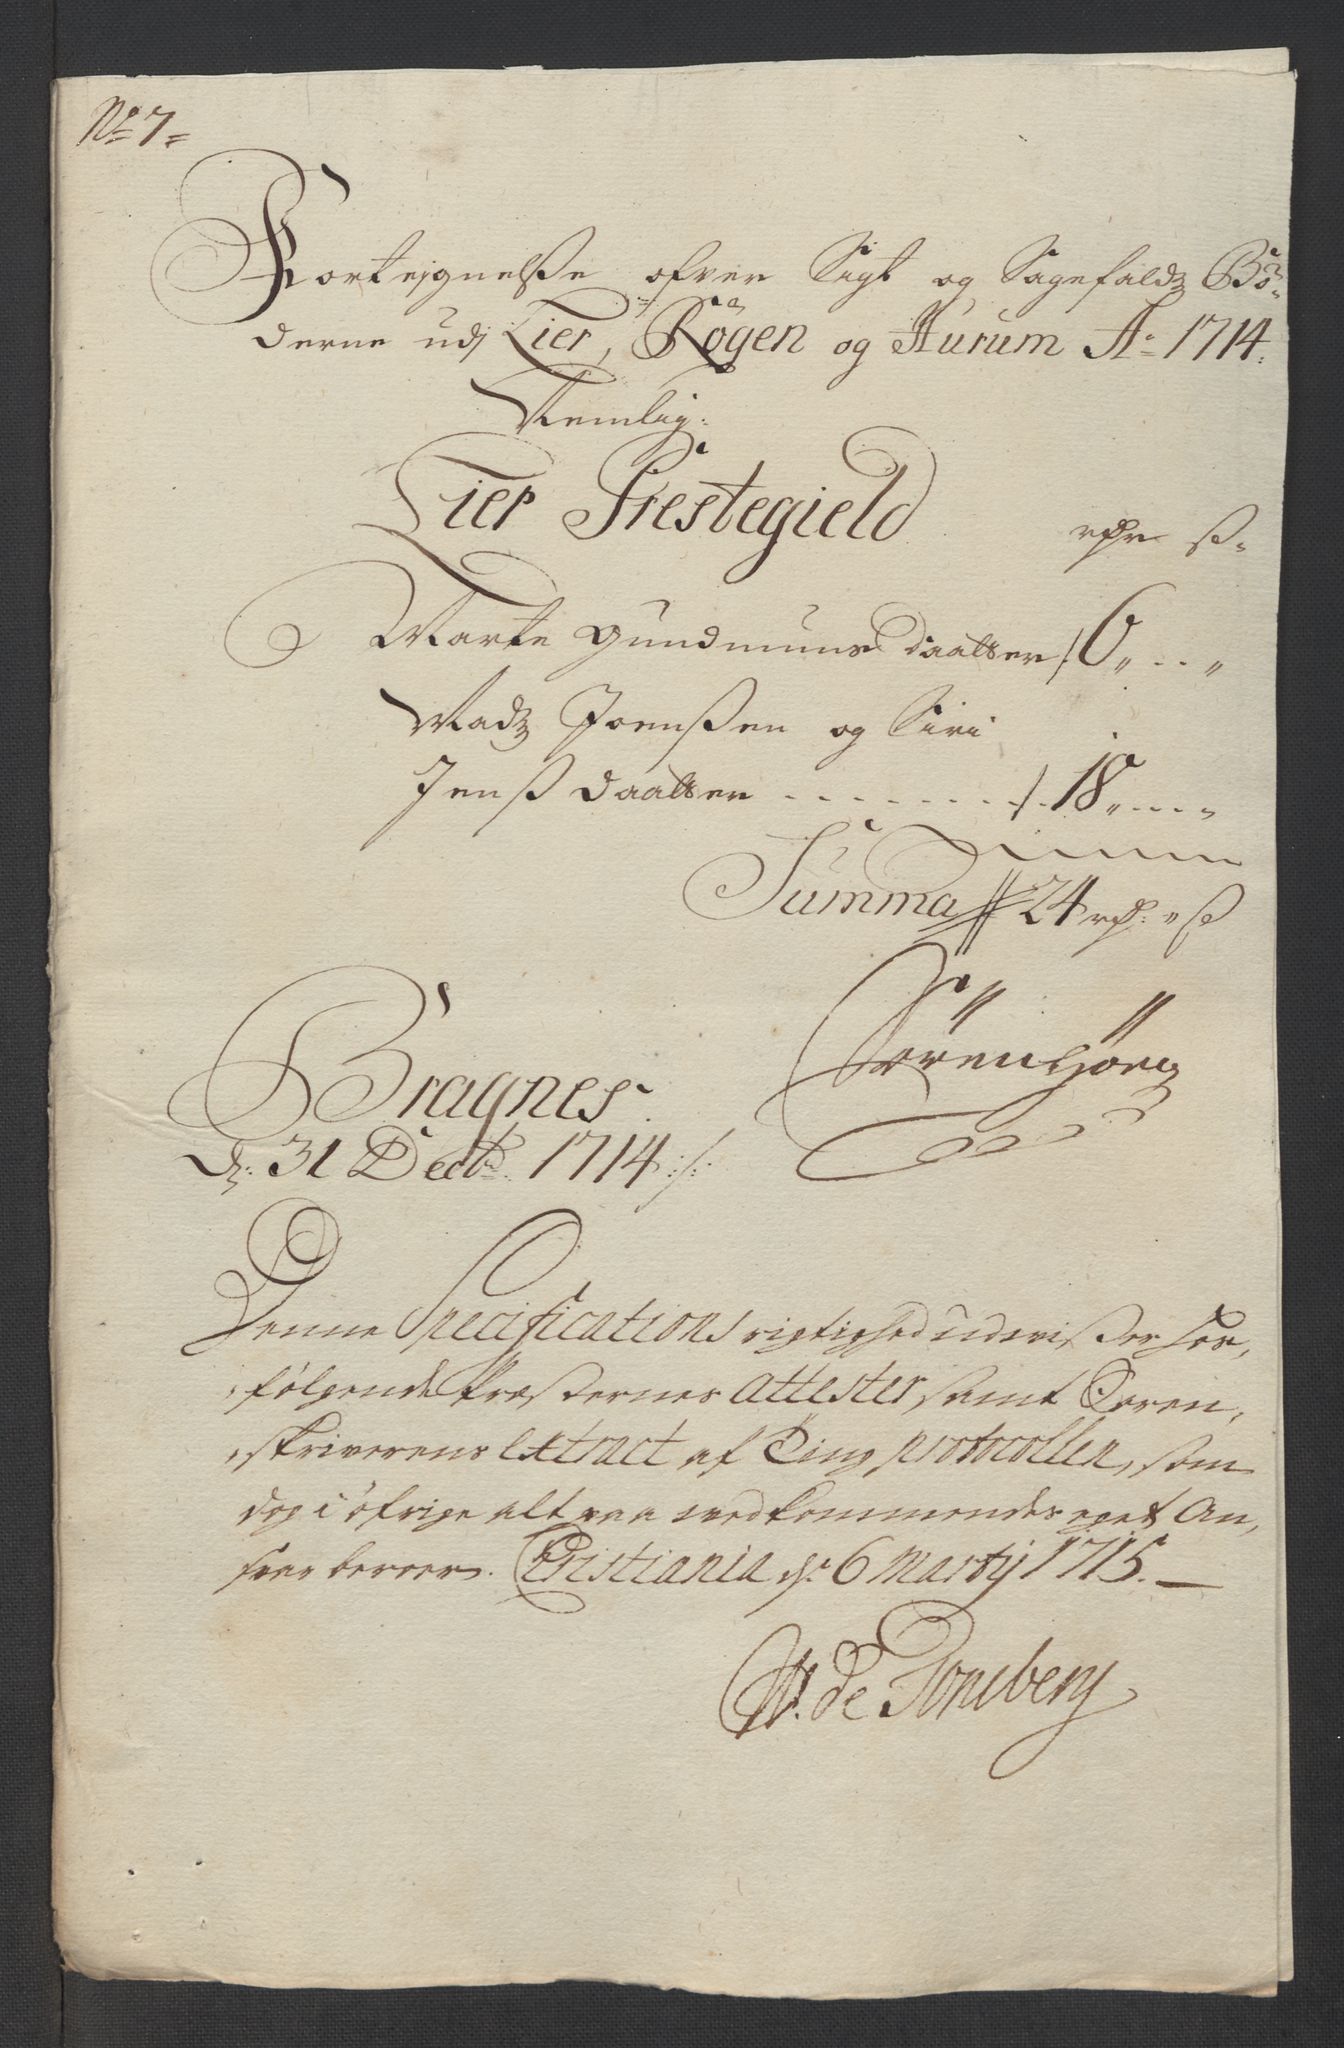 No 7=
Forteignelsße ofver Sigt og Sagefaldz Bø-
derne udj Lier, Røgen og Hurum Ao 1714.
Nemlig:
Lier Prestegield
rdr ß=
Marte Gundmuns daatter /. 6 „ . . „
Madz Joenßen og Siri
Jenß daatter - - - - - - - /. 18 „ . . . „
Summa // 24 rd: „ ß
Bragnes.
d: 31 Decbr. 1714 :/:
Søren Hørg
Denne Specifications rigtighed udviser her,
følgende Præsternes attester, samt Soren,
skriverens extract af Ting protocollen, som
dog i øfrige alt paa vedkommendes eget An,
svar beroer. Christiania d: 6 Martij 1715. —
W. de Tonsberg